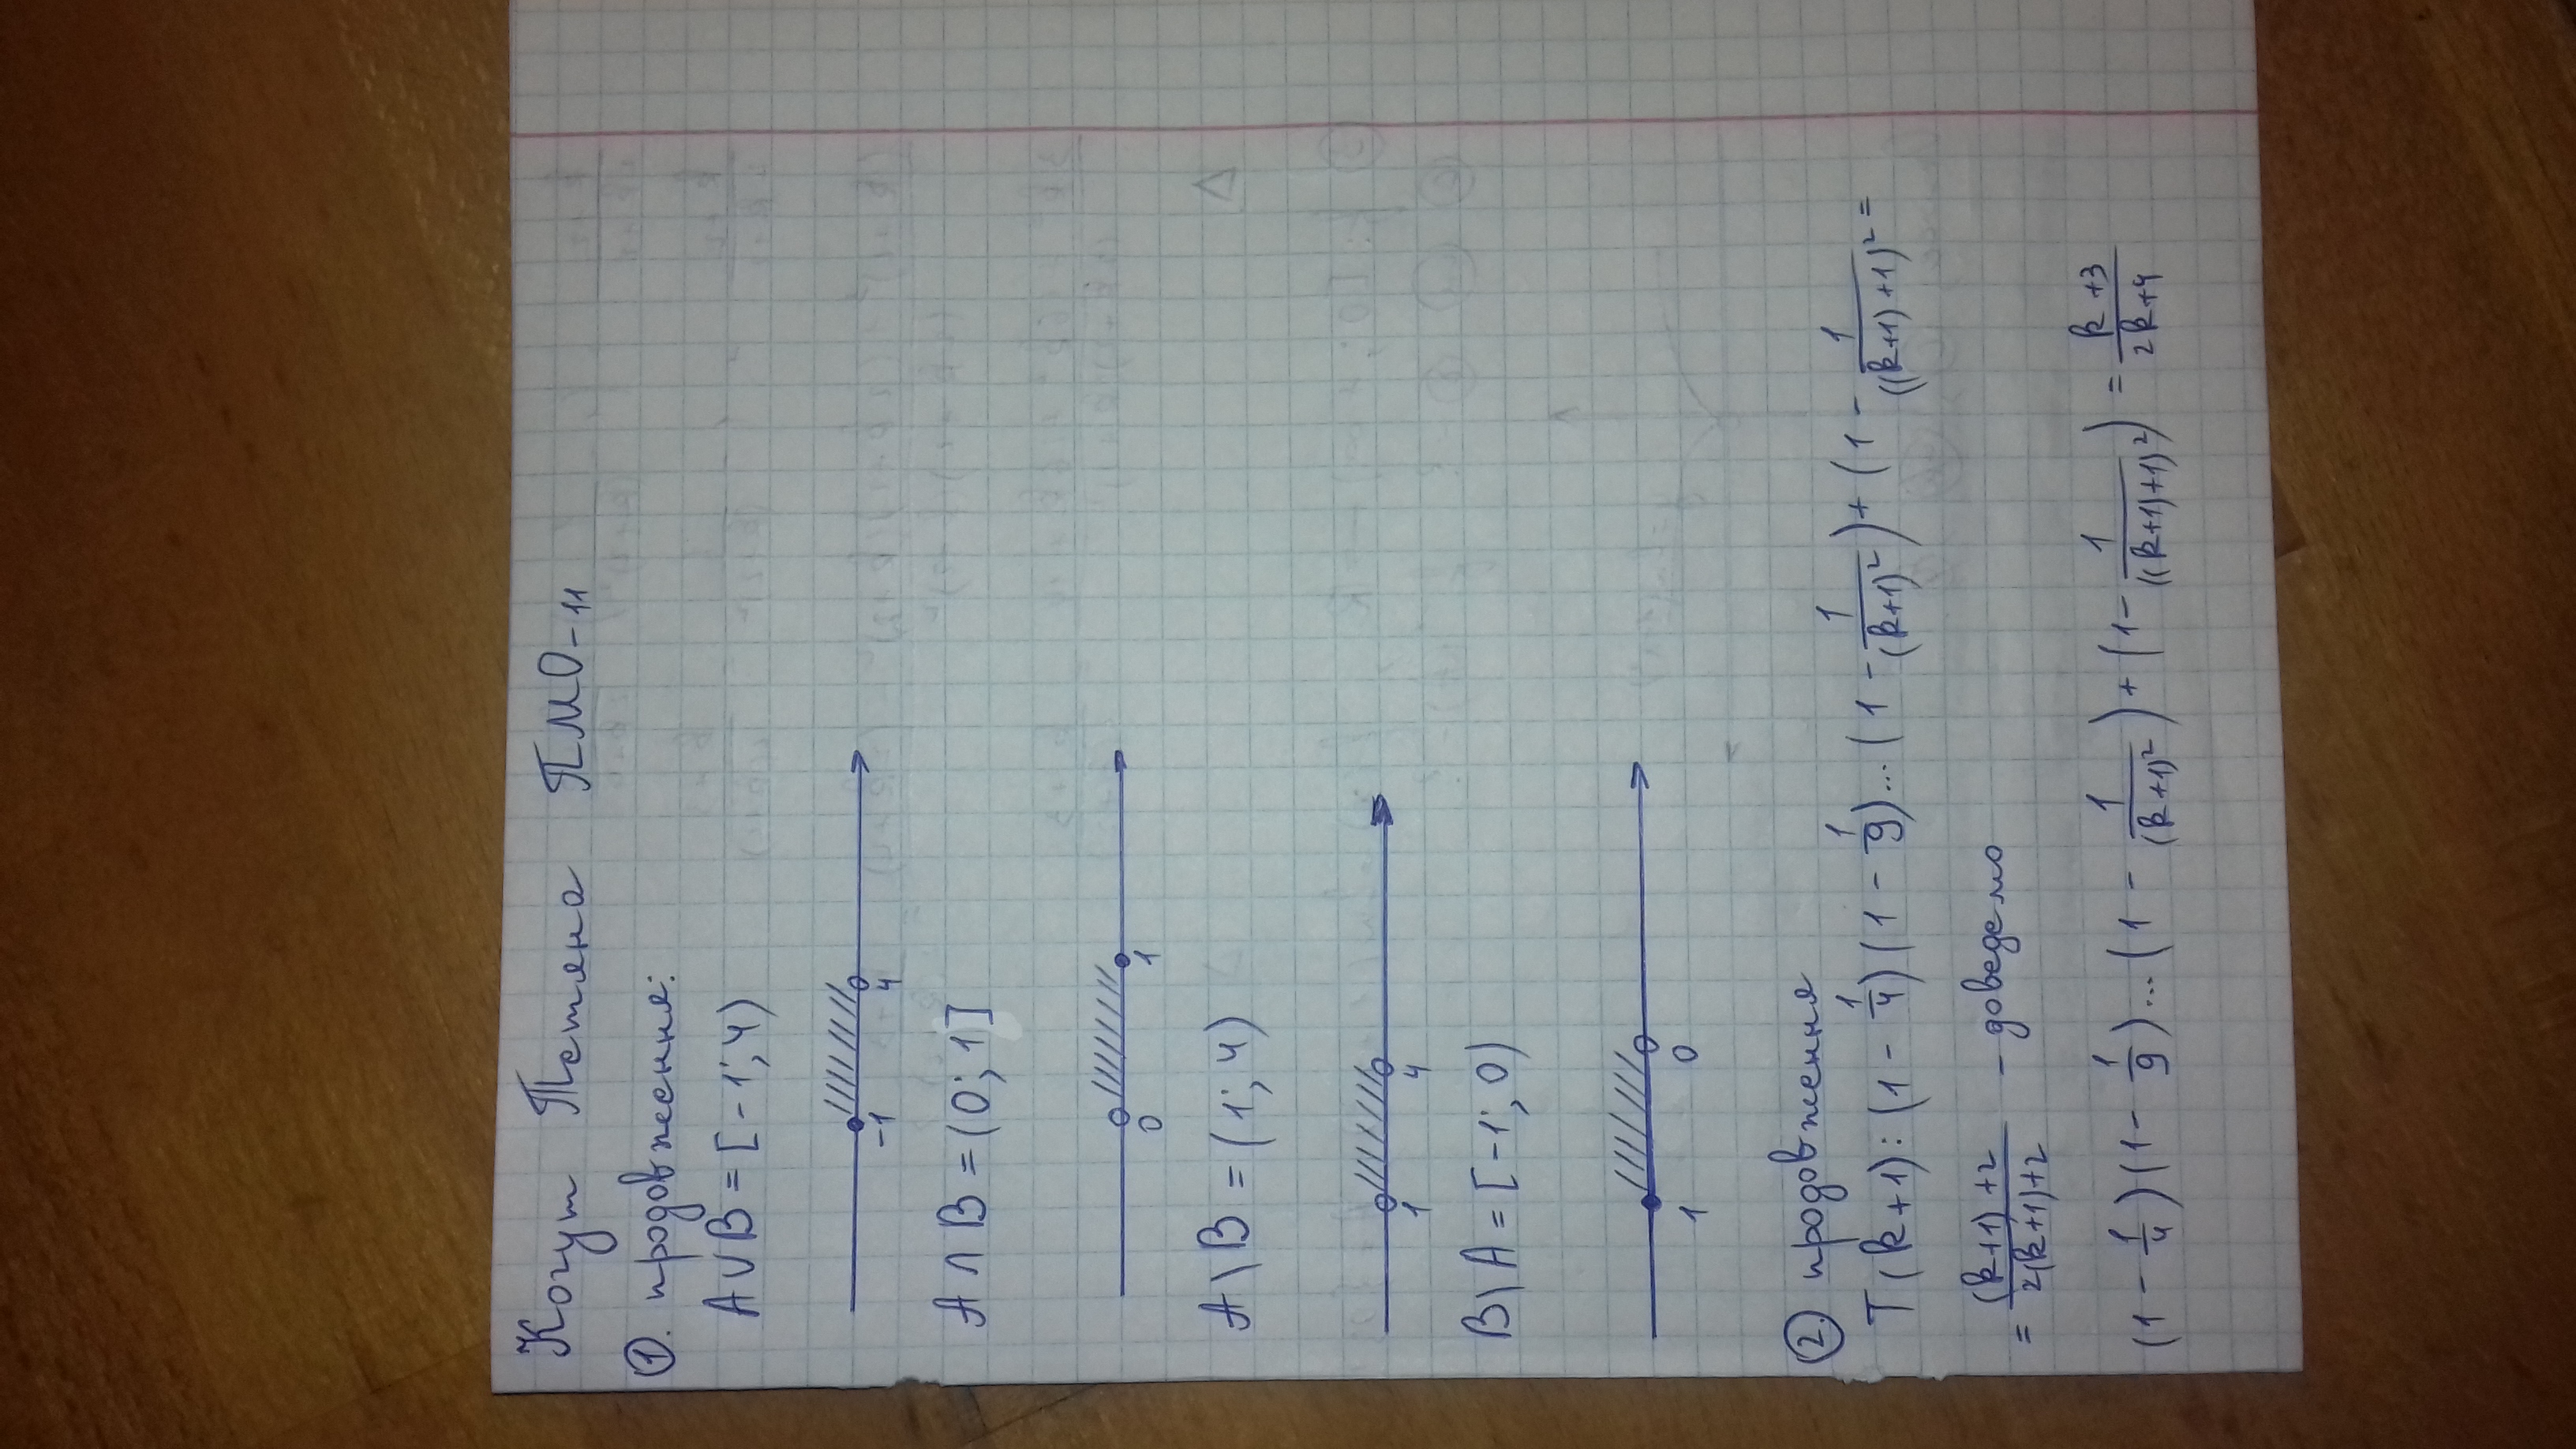 Когут Тетяна ПМО-11
①. продовження:
A∪B = [-1; 4)
-1 4
A∩B = (0; 1]
0 1
A\B = (1; 4)
1 4
B\A = [-1; 0)
1 0
②. продовження
T(k+1): (1 - 1/4)(1 - 1/9)...(1 - 1/(k+1)²) + (1 - 1/((k+1)+1)² =
= (k+1)+2/2(k+1)+2 - доведемо
(1 - 1/4)(1 - 1/9)...(1 - 1/(k+1)²) + (1 - 1/((k+1)+1)²) = k+3/2k+4